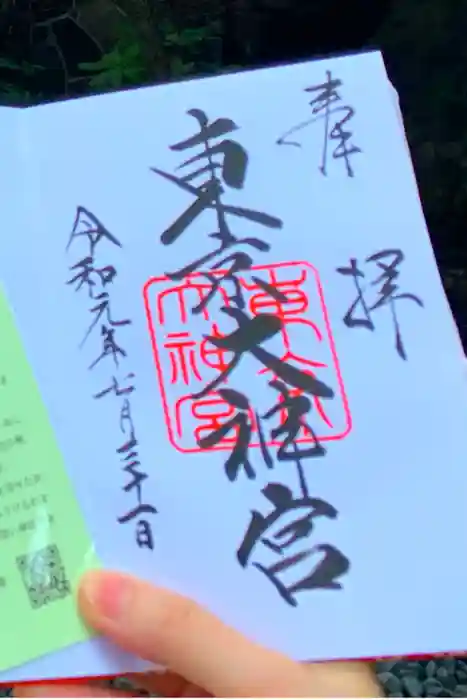 奉拝
東京大神宮
東京大神宮
令和元年七月三十一日